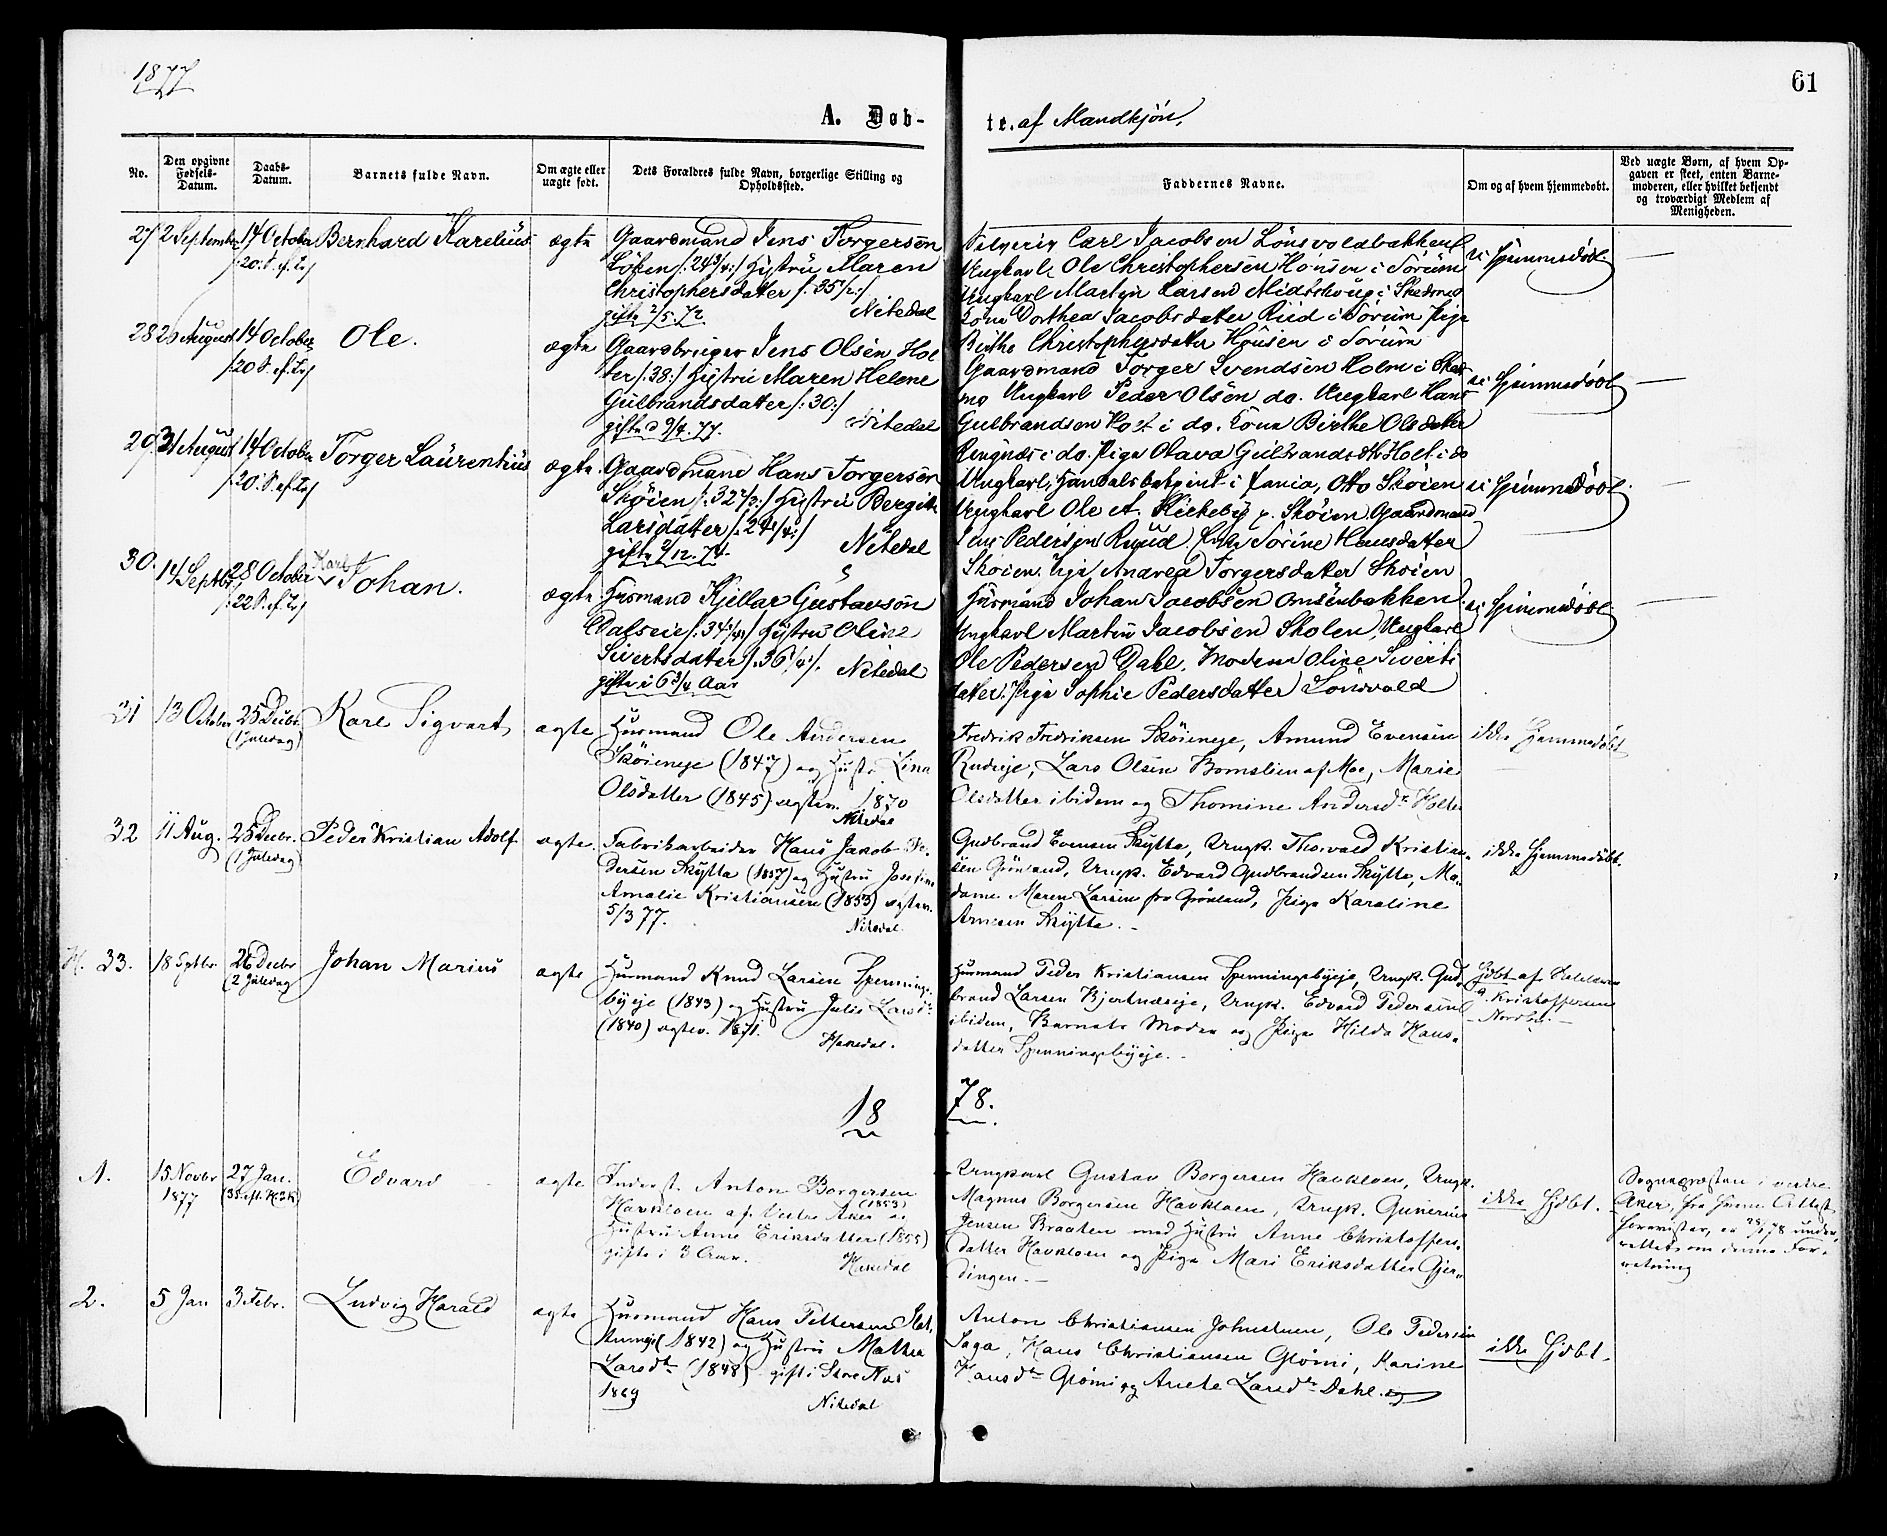 1877
61
A. Døb-
te. af Mandkjøn.
No.
Den opgivne Fødsels-Datum.
Daabs-Datum.
Barnets fulde Navn.
Om ægte eller uægte født.
Dets Forældres fulde Navn, borgerlige Stilling og Opholdssted.
Faddernes Navne.
Om og af hvem hjemmedøbt.
Ved uægte Børn, af hvem Op-
gaven er skeet, enten Barne-
moderen, eller hvilket bekjendt
og troværdigt Medlem af
Menigheden.
27 2 September 14 October Bernhard Karelius ægte
/:20 S. ef. Tr/
Gaardmand Jens Torgersen
Løken /:24 3/4:/ Hustru Maren
Christophersdatter /:35 1/2:/
gifte 2/5. 72. Nitedal
Carl Jacobsen Lønsvoldbakken
Ungkarl Ole Christophersen Hønsen i Sørum
Ungkarl Martin Larsen Midtskoug i Skedsmo
Kone Dorthea Jacobsdatter Rud i Sørum Pige
Birthe Christophersdatter Hønsen i Sørum
ei Hjemmedøbt.
28 20 August 14 October Ole. ægte
/:20 S. ef. Tr/
Gaardbruger Jens Olsen Hol
ter /:38:/ Hustru Maren Helene
Gulbrandsdatter /:30:/
gifte d 9/4. 77. Nitedal
Gaardmand Torger Svendsen Holm i Skeds
mo Ungkarl Peder Olsen do. Ungkarl Hans
Gulbrandsen Holt i do. Kone Birthe Olsdatter
i do. Pige Olava Gulbrandsdtr Holt i do
ei Hjemmedøbt
29. 31 August 14 October Torger Laurentius ægte.
/:20 S. ef. Tr/
Gaardmand Hans Torgersen
Skøien /:32 1/2:/ Hustru Bergite
Larsdatter /:24 1/4:/
gifte 9/12. 74. Nitedal
Ungkarl, Handelsbetjent i Xania, Otto Skøien
Ungkarl Ole A. Kirkeby p. Skøien Gaardmand
Jens Pedersen Ruud. Enke Sørine Hansdatter
Skøien. Pige Andrea Torgersdatter Skøien
ei Hjemmedøbt.
30. 14 Septbr. 28 October Karl Johan. ægte
/:22 S. ef. Tr/
Husmand Kjellar Gustavson
Dalseie /:34 1/4:/ Hustru Oline
Sivertsdatter /:36 1/4:/. Nitedal
gifte i 6 3/4 Aar
Husmand Johan Jacobsen Omsenbakken
Ungkarl Martin Jacobsen Skolen, Ungkarl
Ole Pedersen Dahl. Moderen Oline Siverts
datter. Pige Sophie Pedersdatter Lønsvold
ei Hjemmedøbt.
31 13 October 25 Decbr. Karl Sigvart ægte
(1 Juledag)
Husmand Ole Andersen
Skøieneje (1847) og Hustru Lina
Olsdatter (1845) ægtev. 1870
Nitedal
Fredrik Fredriksen Skøieneje, Amund Evensen
Rudseje, Lars Olsen Bomslien af Moe, Marie
Olsdatter ibidem og Thomine Andersdtr Holter
ikke Hjemmedøbt
32 11 Aug. 25 Decbr. Peder Kristian Adolf ægte.
(1 Juledag)
Fabrikarbeider Hans Jakob Pe-
dersen Skytta (1857) og Hustru Josefine
Amalie Kristiansen (1853) ægtev.
5/3 77. Nitedal.
Gudbrand Evensen Skytta, Ungk. Thorvald Kristian-
sen Grønland, Ungk. Edvard Gudbrandsen Skytta, Ma-
dame Maren Larsen fra Grønland, Pige Karoline
Arnesen Skytta.
ikke Hjemmedøbt.
H. 33. 18 Septbr 26 Decbr Johan Marius ægte
2 Juledag
Husmand Knud Larsen Spennings-
byeje (1843) og Hustru Julie Larsdtr
(1840) ægtev. 1871.
Hakedal.
Husmand Peder Kristiansen Spenningsbyeje, Ungk. Gud-
brand Larsen Kjertnæseje, Ungk. Edvard Pedersen
ibidem, Barnets Moder og Pige Hilda Hans-
datter Spenningsbyeje.
Hjdbt af
Kristoffersen
Nordby.
18 78.
1. 15 Novbr 1877 27 Jan. Edvard ægte
(3 S. eft. H3K)
Inderst. Anton Borgersen
Havkloen af Vestre Aker (1853) og
Hustru Anne Eriksdatter (1855)
gifte i 3 Aar. Hakedal
Ungkarl Gustav Borgersen Havkloen, Ungk.
Magnus Borgersen Havkloen, Ungk. Gunerius
Jensen Braaten med Hustru Anne Christoffers-
datter Havkloen og Pige Mari Eriksdatter Gjer-
dingen.
ikke Hjdbt.
Sognepræsten i Vestre
Aker, fra hvem Attest
forevistes, er 28/1 78 under-
rettet om denne For-
retning
2. 5 Jan 3 Febr. Ludvig Harald ægte
Husmand Hans Pettersen Slat-
tumeje (1842) og Hustru Mathea
Larsdtr (1848) gift i Store Næs
1869 Nitedal
Anton Christiansen Johnstuen, Ole Pedersen
Saga, Hans Christiansen Glømi, Karine
Hansdtr Glømi og Anete Larsdtr Dahl.
ikke Hjdbt.